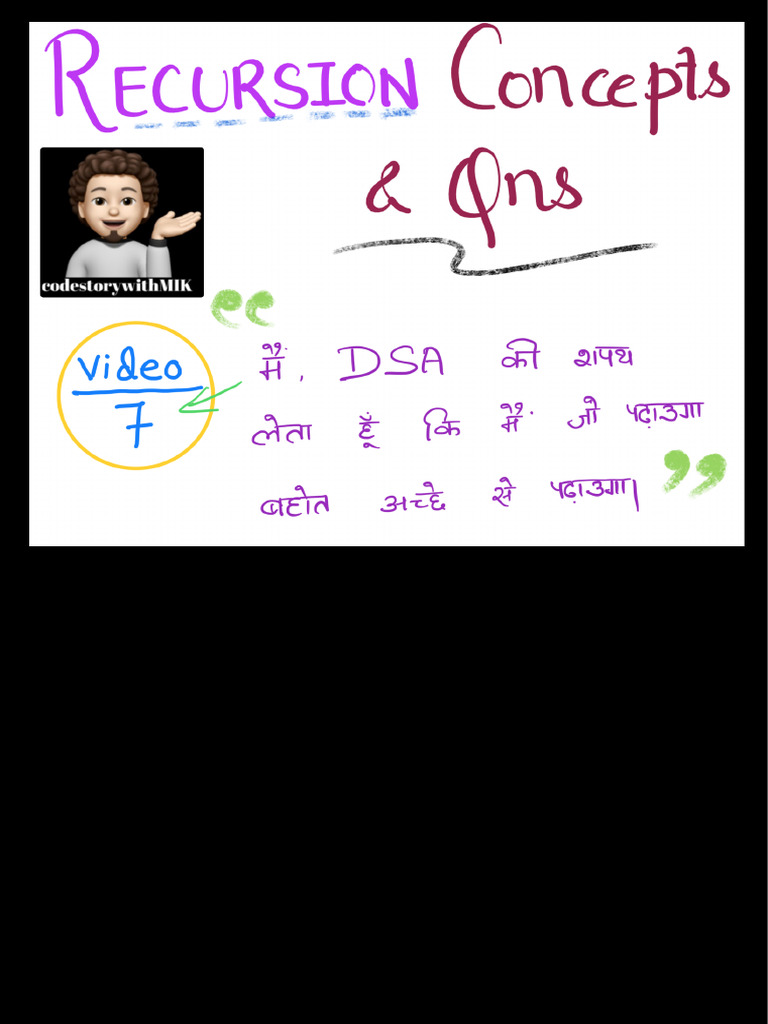 RECURSION Concepts
& Qns
codestorywithMIK
video
7
“
मैं, DSA की शपथ
लेता हूँ कि मैं जो पढ़ाउगा
बहोत अच्छे से पढ़ाउगा।
”